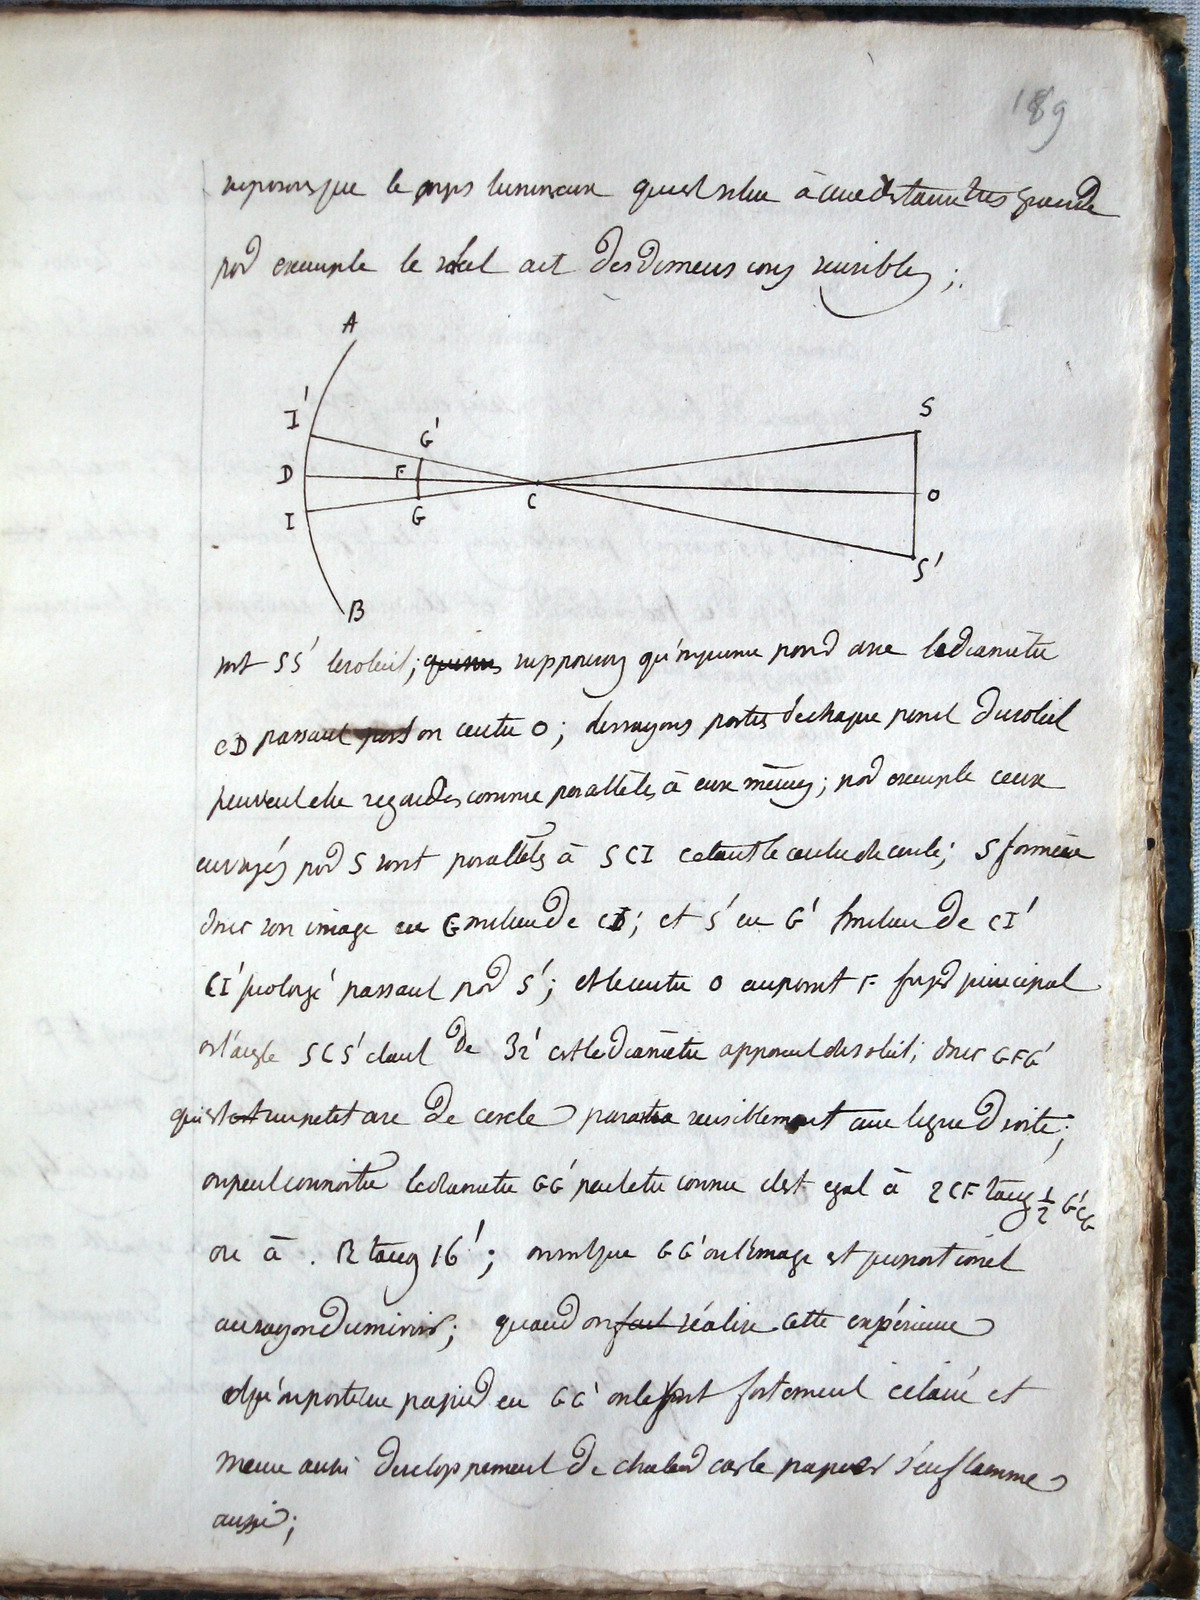 189
supposons que le corps lumineux qui est situe à une distance tres grande
pour exemple le soleil ait des dimensions sensibles ;.
A
I'
G'
S
D
F
C
O
I
G
S'
B
soit SS' le soleil; supposons qu'on prenne pour axe le diamètre
CD passant par son centre O; des rayons partis de chaque point du soleil
peuvent etre regardes comme parallèles à eux mêmes; pour exemple ceux
envoyés pour S sont parallèles à SCI C etant le centre de cercle; S formera
donc son image en G milieu de CI; et S' en G' milieu de CI'
CI' prolongé passant pour S'; et le centre O au point F foyer principal
or l'angle SCS' etant de 32' est le diamètre apparent du soleil; donc GFG'
qui est un petit arc de cercle paraitra sensiblement une ligne droite;
on peut connoitre le diametre GG' peut etre connu il est egal à 2CF tang 1/2 G'CG
ou à . R tang 16'; on voit que GG' ou l'image est proportionel
au rayon du miroir; quand on réalise cette expérience
et qu'on porte un papier en GG' on le voit fortement éclairé et
meme aussi developpement de chaleur car le papier s'enflamme
aussi;